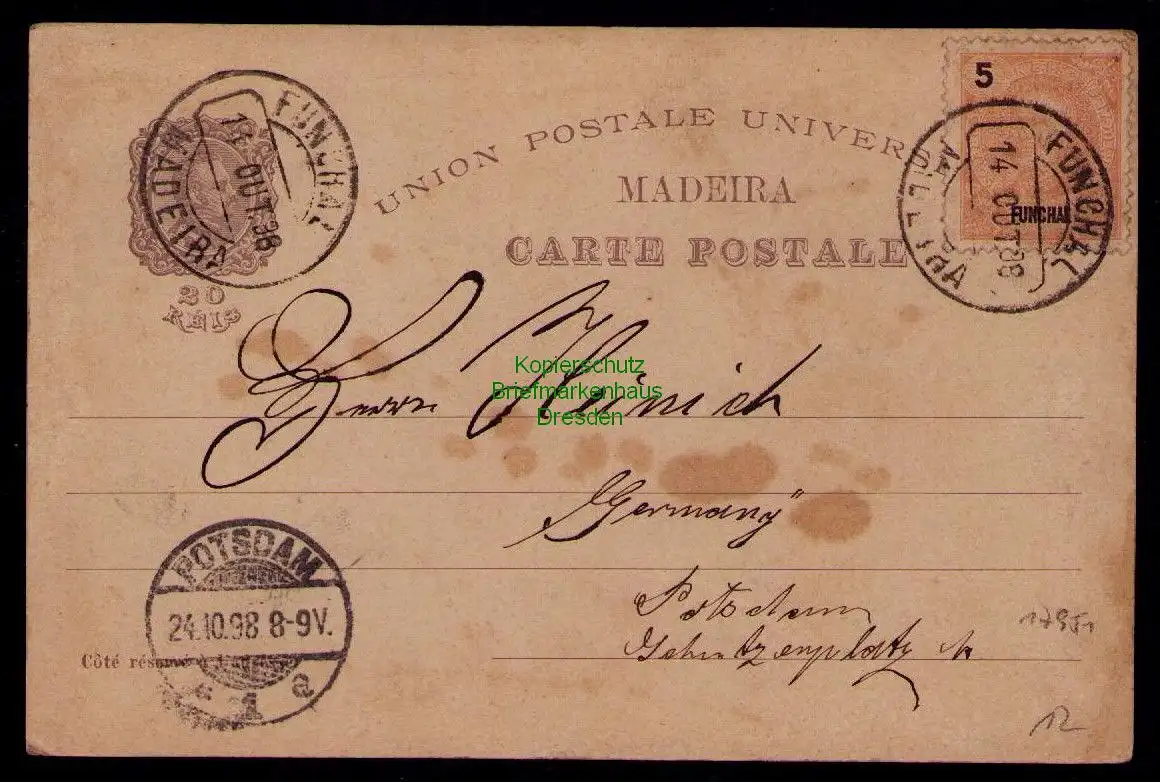 UNION POSTALE UNIVERSELLE
MADEIRA
CARTE POSTALE
5
FUNCHAL
FUNCHAL
14 OUT 98
MADEIRA
FUNCHAL
14 OUT 98
MADEIRA
20
REIS
Herrn Heinich
Kopierschutz
Briefmarkenhaus
Dresden
"Germany"
Potsdam
POTSDAM
24.10.98 8-9V.
1 a
Côté réservé à l'adresse
12